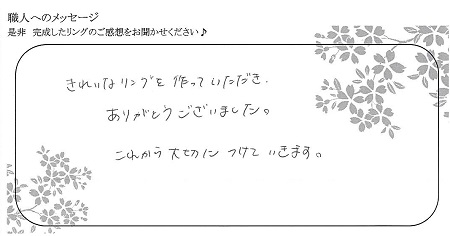 職人へのメッセージ
是非 完成したリングのご感想をお聞かせください♪
きれいなリングを作っていただき、
ありがとうございました。
これから大切につけていきます。